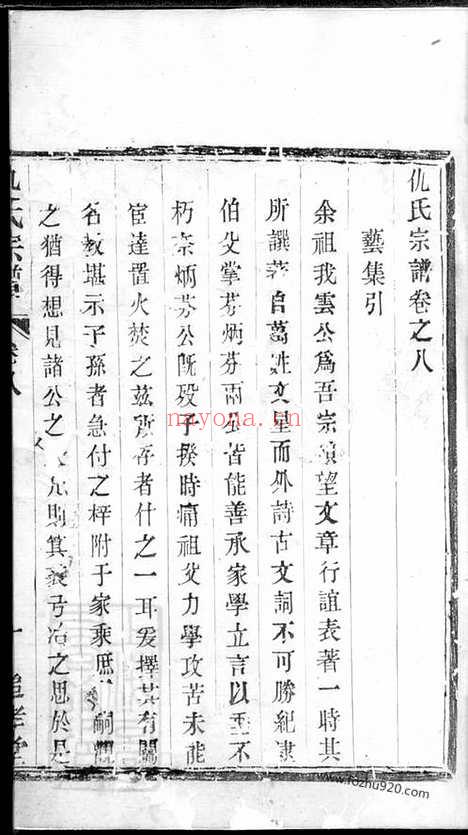 仇氏宗譜卷之八
藝集引
余祖我雲公爲吾宗碩望文章行誼表著一時其
所譔著自葛姓文星而外詩古文詞不可勝紀逮
伯父掌芬炳芬兩公皆能善承家學立言以垂不
朽柰炳芬公旣殁子揆時痛祖父力學攻苦未能
宦達置火焚之茲所存者什之一耳爰擇其有關
名敎堪示子孫者急付之梓附于家乘庶後嗣觀
之猶得想見諸公之 則箕裘弓冶之思於是
仇氏宗譜
卷八
一
追孝堂
nayona.cn
www.fozhu920.com